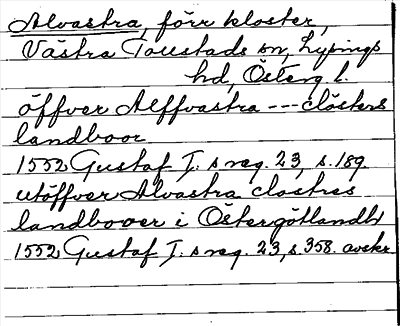 Alvastra, förr kloster,
Västra Tollstads sn, Lysings
hd, Österg l.
öffver Alffvastra --- clösters
landboor
1552 Gustaf I:s reg. 23, s. 189.
utöffver Alvastra closters
landbooer i Östergötlandh
1552 Gustaf I:s reg. 23, s. 358. avskr.